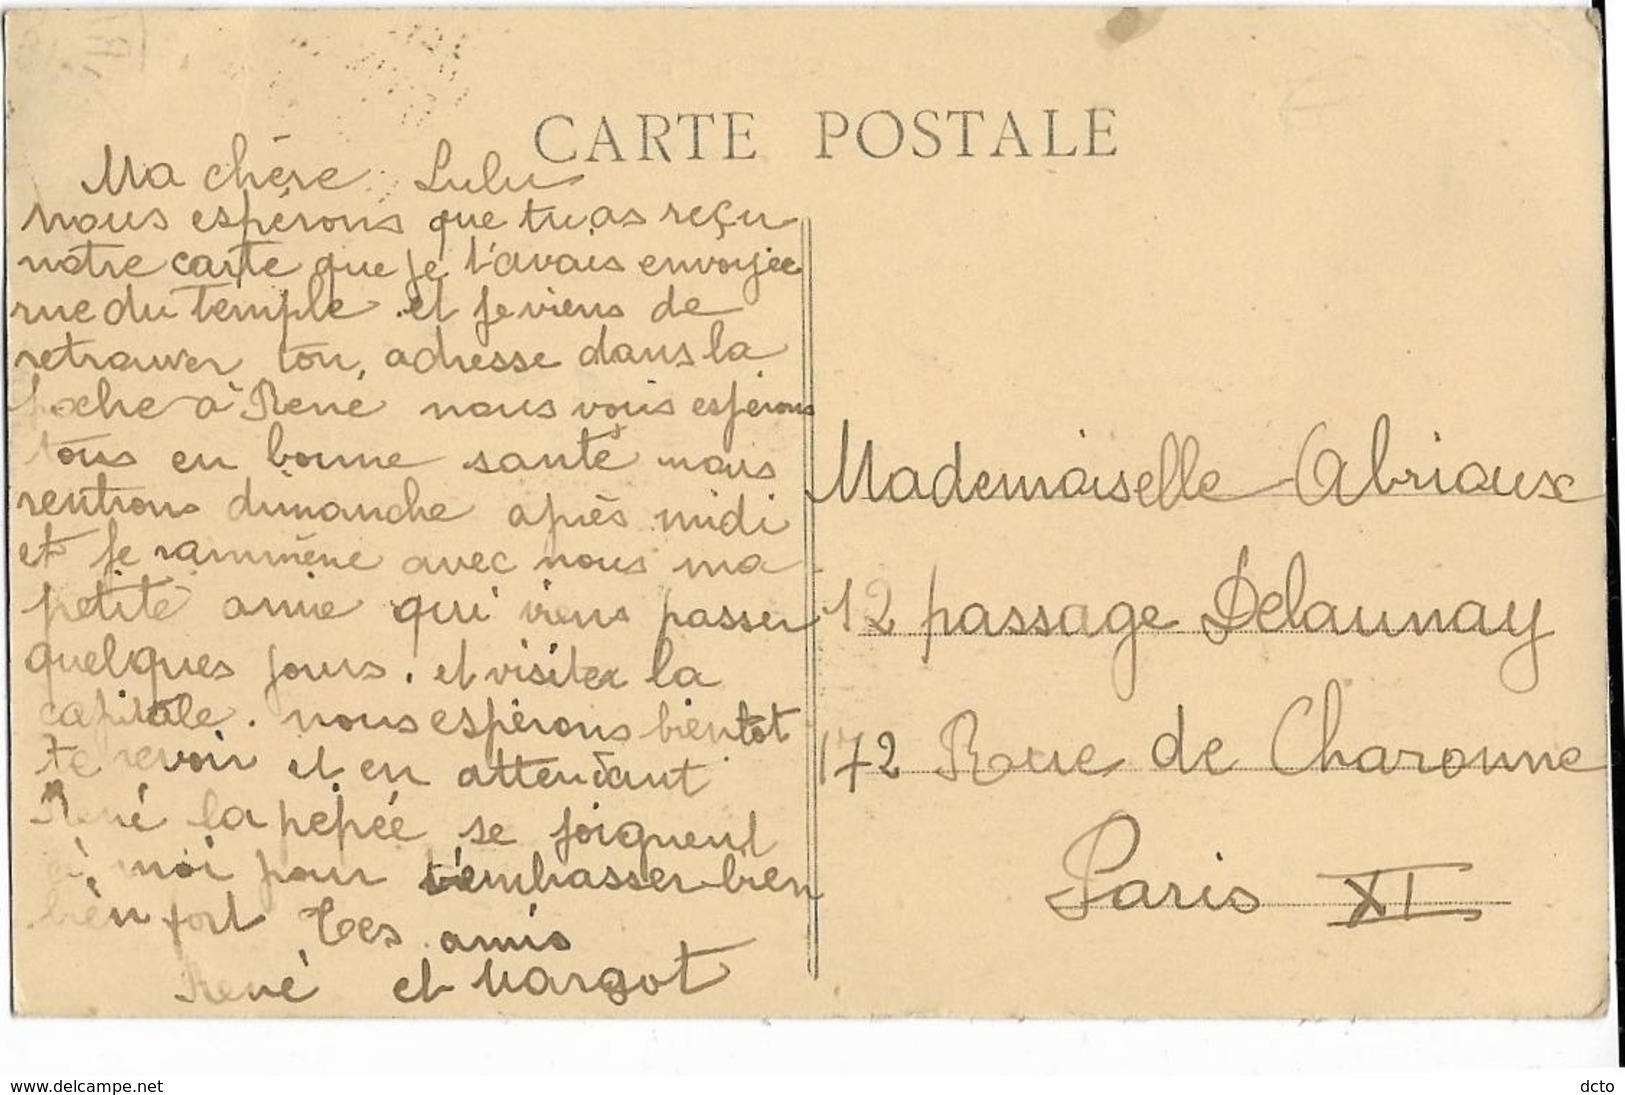 CARTE POSTALE
Ma chère Lulu
nous espérons que tu as reçu
notre carte que je t'avais envoyée
rue du Temple. et je viens de
retrouver ton, adresse dans la
poche à René nous vous espérons
tous en bonne santé nous
rentrons dimanche après midi
et je rammène avec nous ma
petite amie qui viens passer
quelques jours. et visiter la
capitale. nous espérons bientot
te revoir et en attendant
René la pépée se joignent
à moi pour t'embrasser bien
bien fort Tes amis
René et Margot
Mademoiselle Abrioux
12 passage Delaunay
172 Rue de Charonne
Paris XI
www.delcampe.net
dcto